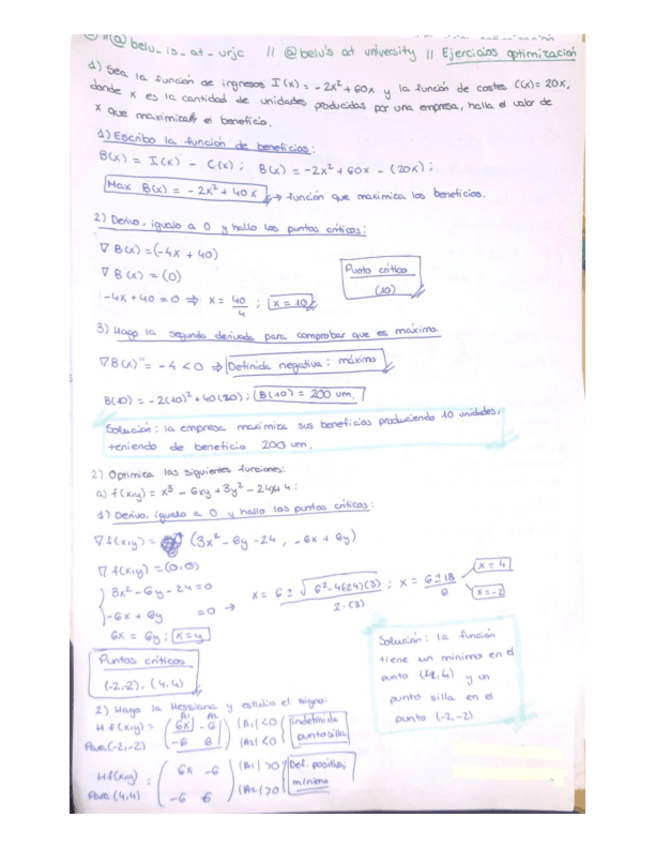 @belu_is_at_urjc // @belu's at university // Ejercicios optimización
1) Sea la función de ingresos I(x) = -2x² + 60x y la función de costes C(x) = 20x,
donde x es la cantidad de unidades producidas por una empresa, halla el valor de
x que maximiza el beneficio.
1) Escribo la función de beneficios:
B(x) = I(x) - C(x); B(x) = -2x² + 60x - (20x);
Max B(x) = -2x² + 40x → función que maximiza los beneficios.
2) Derivo, igualo a 0 y hallo los puntos críticos:
∇B(x) = (-4x + 40)
∇B(x) = (0)
-4x + 40 = 0 ⇒ x = 40/4 ; x = 10
Punto crítico
(10)
3) Hago la segunda derivada para comprobar que es máximo.
∇B(x)'' = -4 < 0 ⇒ Definida negativa: máximo
B(10) = -2(10)² + 40(10); B(10) = 200 um.
Solución: la empresa maximiza sus beneficios produciendo 10 unidades,
teniendo de beneficio 200 um.
2) Optimiza las siguientes funciones:
a) f(x,y) = x³ - 6xy + 3y² - 24x + 4:
1) Derivo, igualo a 0 y hallo los puntos críticos:
∇f(x,y) = (3x² - 6y - 24, -6x + 6y)
∇f(x,y) = (0,0)
3x² - 6y - 24 = 0
-6x + 6y = 0 →
x = 6 ± √6² - 4(24)(3) / 2·(3) ; x = 6 ± 18 / 6
x = 4
x = -2
6x = 6y; x = y
Puntos críticos
(-2,-2), (4,4)
Solución: la función
tiene un mínimo en el
punto (4,4) y un
punto silla en el
punto (-2,-2)
2) Hago la Hessiana y estudio el signo:
A1 A2
H f(x,y) = (6x -6 |A1| < 0 indefinida
Para (-2,-2) -6 6) |A2| < 0 punto silla
Hf(x,y) = (6x -6 |A1| > 0 Def. positiva;
Para (4,4) -6 6) |A2| > 0 mínimo